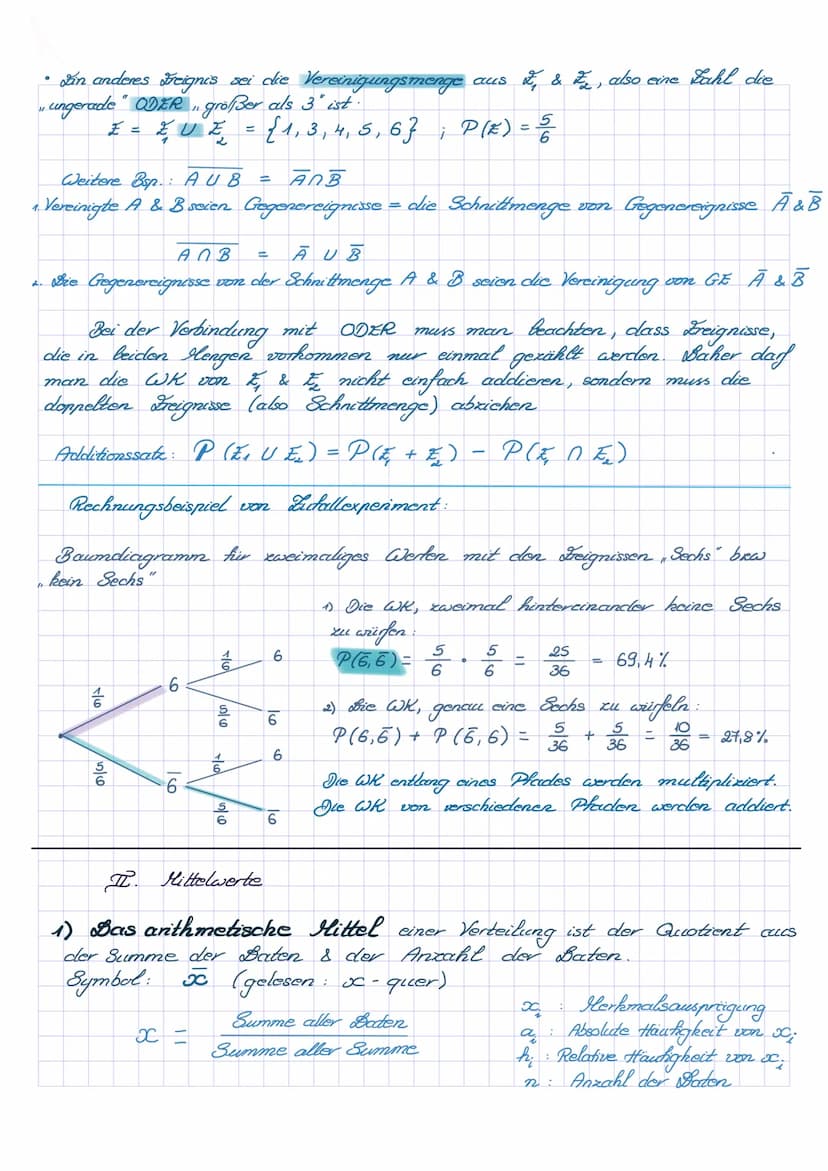 • Ein anderes Ereignis sei die Vereinigungsmenge aus E₁ & E₂, also eine Zahl die
„ungerade" ODER „größer als 3" ist.
E = E₁ ∪ E₂ = {1, 3, 4, 5, 6} ; P(E) = 5/6
Weitere Bsp.: \overline{A ∪ B} = \overline{A} ∩ \overline{B}
1. Vereinigte A & B seien Gegenereignisse = die Schnittmenge von Gegenereignisse \overline{A} & \overline{B}
\overline{A ∩ B} = \overline{A} ∪ \overline{B}
2. Die Gegenereignisse von der Schnittmenge A & B seien die Vereinigung von GE \overline{A} & \overline{B}
Bei der Verbindung mit ODER muss man beachten, dass Ereignisse,
die in beiden Mengen vorkommen nur einmal gezählt werden. Daher darf
man die WK von E₁ & E₂ nicht einfach addieren, sondern muss die
doppelten Ereignisse (also Schnittmenge) abziehen
Additionssatz: P(E₁ ∪ E₂) = P(E₁ + E₂) - P(E₁ ∩ E₂)
Rechnungsbeispiel von Zufallexperiment:
Baumdiagramm für zweimaliges Werfen mit den Ereignissen „Sechs" bzw
„kein Sechs"
1) Die WK, zweimal hintereinander keine Sechs
zu würfen:
P(\overline{6}, \overline{6}) = 5/6 · 5/6 = 25/36 = 69,4%
2) Die WK, genau eine Sechs zu würfeln:
P(6, \overline{6}) + P(\overline{6}, 6) = 5/36 + 5/36 = 10/36 = 27,8%
Die WK entlang eines Pfades werden multipliziert.
Die WK von verschiedenen Pfaden werden addiert.
1/6 6
1/6 6
5/6 \overline{6}
5/6 \overline{6}
1/6 6
5/6 \overline{6}
II. Mittelwerte
1) Das arithmetische Mittel einer Verteilung ist der Quotient aus
der Summe der Daten & der Anzahl der Daten.
Symbol: \overline{x} (gelesen: x-quer)
x = Summe aller Daten / Summe aller Summe
xᵢ : Merkmalsausprägung
aᵢ : Absolute Häufigkeit von xᵢ
hᵢ : Relative Häufigkeit von xᵢ
n : Anzahl der Daten